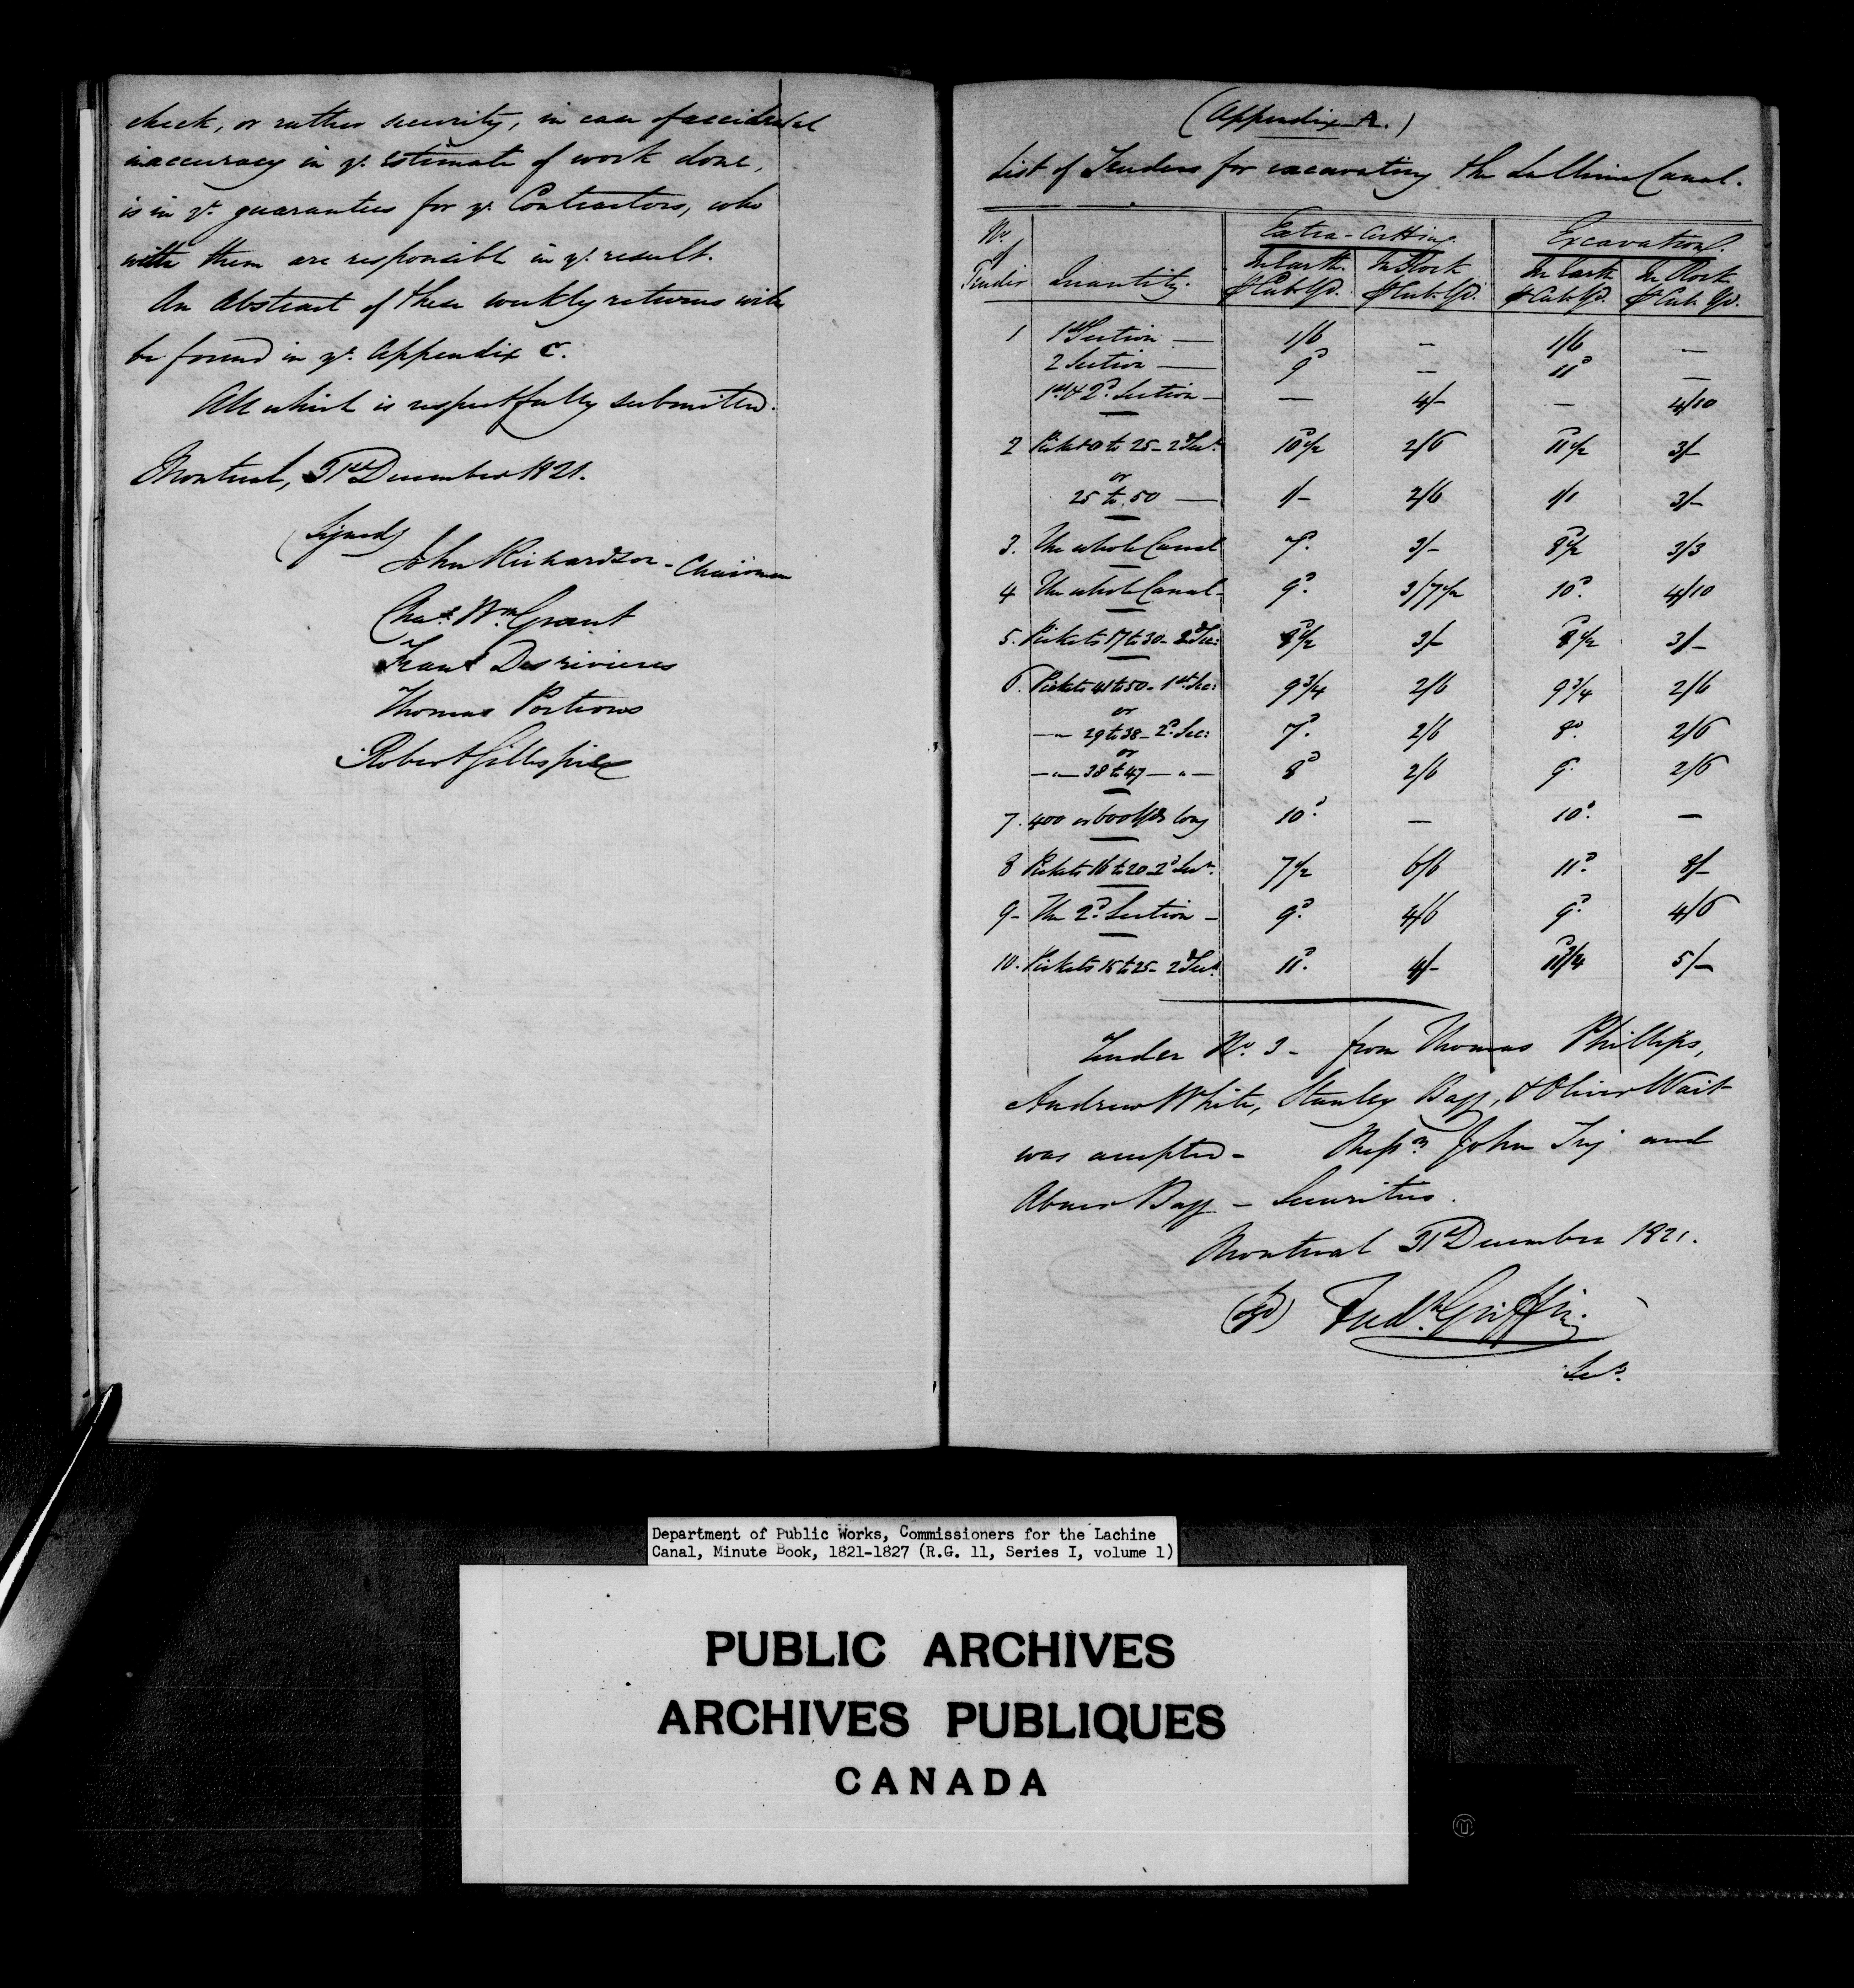 check, or rather security, in case of accidental
inaccuracy in ye. estimate of work done,
is in ye. guarantees for ye. Contractors, who
with them are responsible in ye. result.
An Abstract of these weekly returns will
be found in ye. Appendix C.
All which is respectfully submitted.
Montreal, 31st December 1821.
(Signed)
John Richardson - Chairman
Chas. Wm. Grant
Frans. Desrivieres
Thomas Porteous
Robert Gillespie
(Appendix A.)
List of Tenders for excavating the La Chine Canal.
No. of Tender | Quantity. | Extra-Cutting. | Excavation.
In Earth ⅌ Cub. Yd. | In Rock ⅌ Cub. Yd. | In Earth ⅌ Cub. Yd. | In Rock ⅌ Cub. Yd.
1 1st Section — 1/6 — 1/6 —
2 Section — 9d — 11d —
1st & 2d. Section — — 4/- — 4/10
2 Pickets 0 to 25 - 2d Secn. 10d½ 2/6 11d½ 3/-
or
25 to 50 — 1/- 2/6 1/1 3/-
3. The whole Canal 7d. 3/- 8d½ 3/3
4 The whole Canal - 9d. 3/7½ 10d. 4/10
5. Pickets 17 to 30 - 2d Sec: 8d½ 3/- 8d½ 3/-
6. Pickets 41 to 50 - 1st. Sec: 9¾ 2/6 9¾ 2/6
or
—"— 29 to 38 - 2d. Sec: 7d. 2/6 8d. 2/6
or
—"— 38 to 47 —"— 8d 2/6 9. 2/6
7. 400 or 600 Yds long 10d. — 10d. —
8 Pickets 16 to 20 - 2d Secn. 7½ 6/6 11d. 8/-
9 - The 2d. Section - 9d. 4/6 9d. 4/6
10. Pickets 15 to 25 - 2d Secn. 11d. 4/- 11d¾ 5/-
Tender No. 3 - from Thomas Phillips,
Andrew White, Stanley Bagg, & Oliver Wait
was accepted - Messrs. John Try and
Abner Bagg - Securities.
Montreal 31st December 1821.
(sgd) Fredk. Griffin.
Secy.
Department of Public Works, Commissioners for the Lachine
Canal, Minute Book, 1821-1827 (R.G. 11, Series I, volume 1)
PUBLIC ARCHIVES
ARCHIVES PUBLIQUES
CANADA